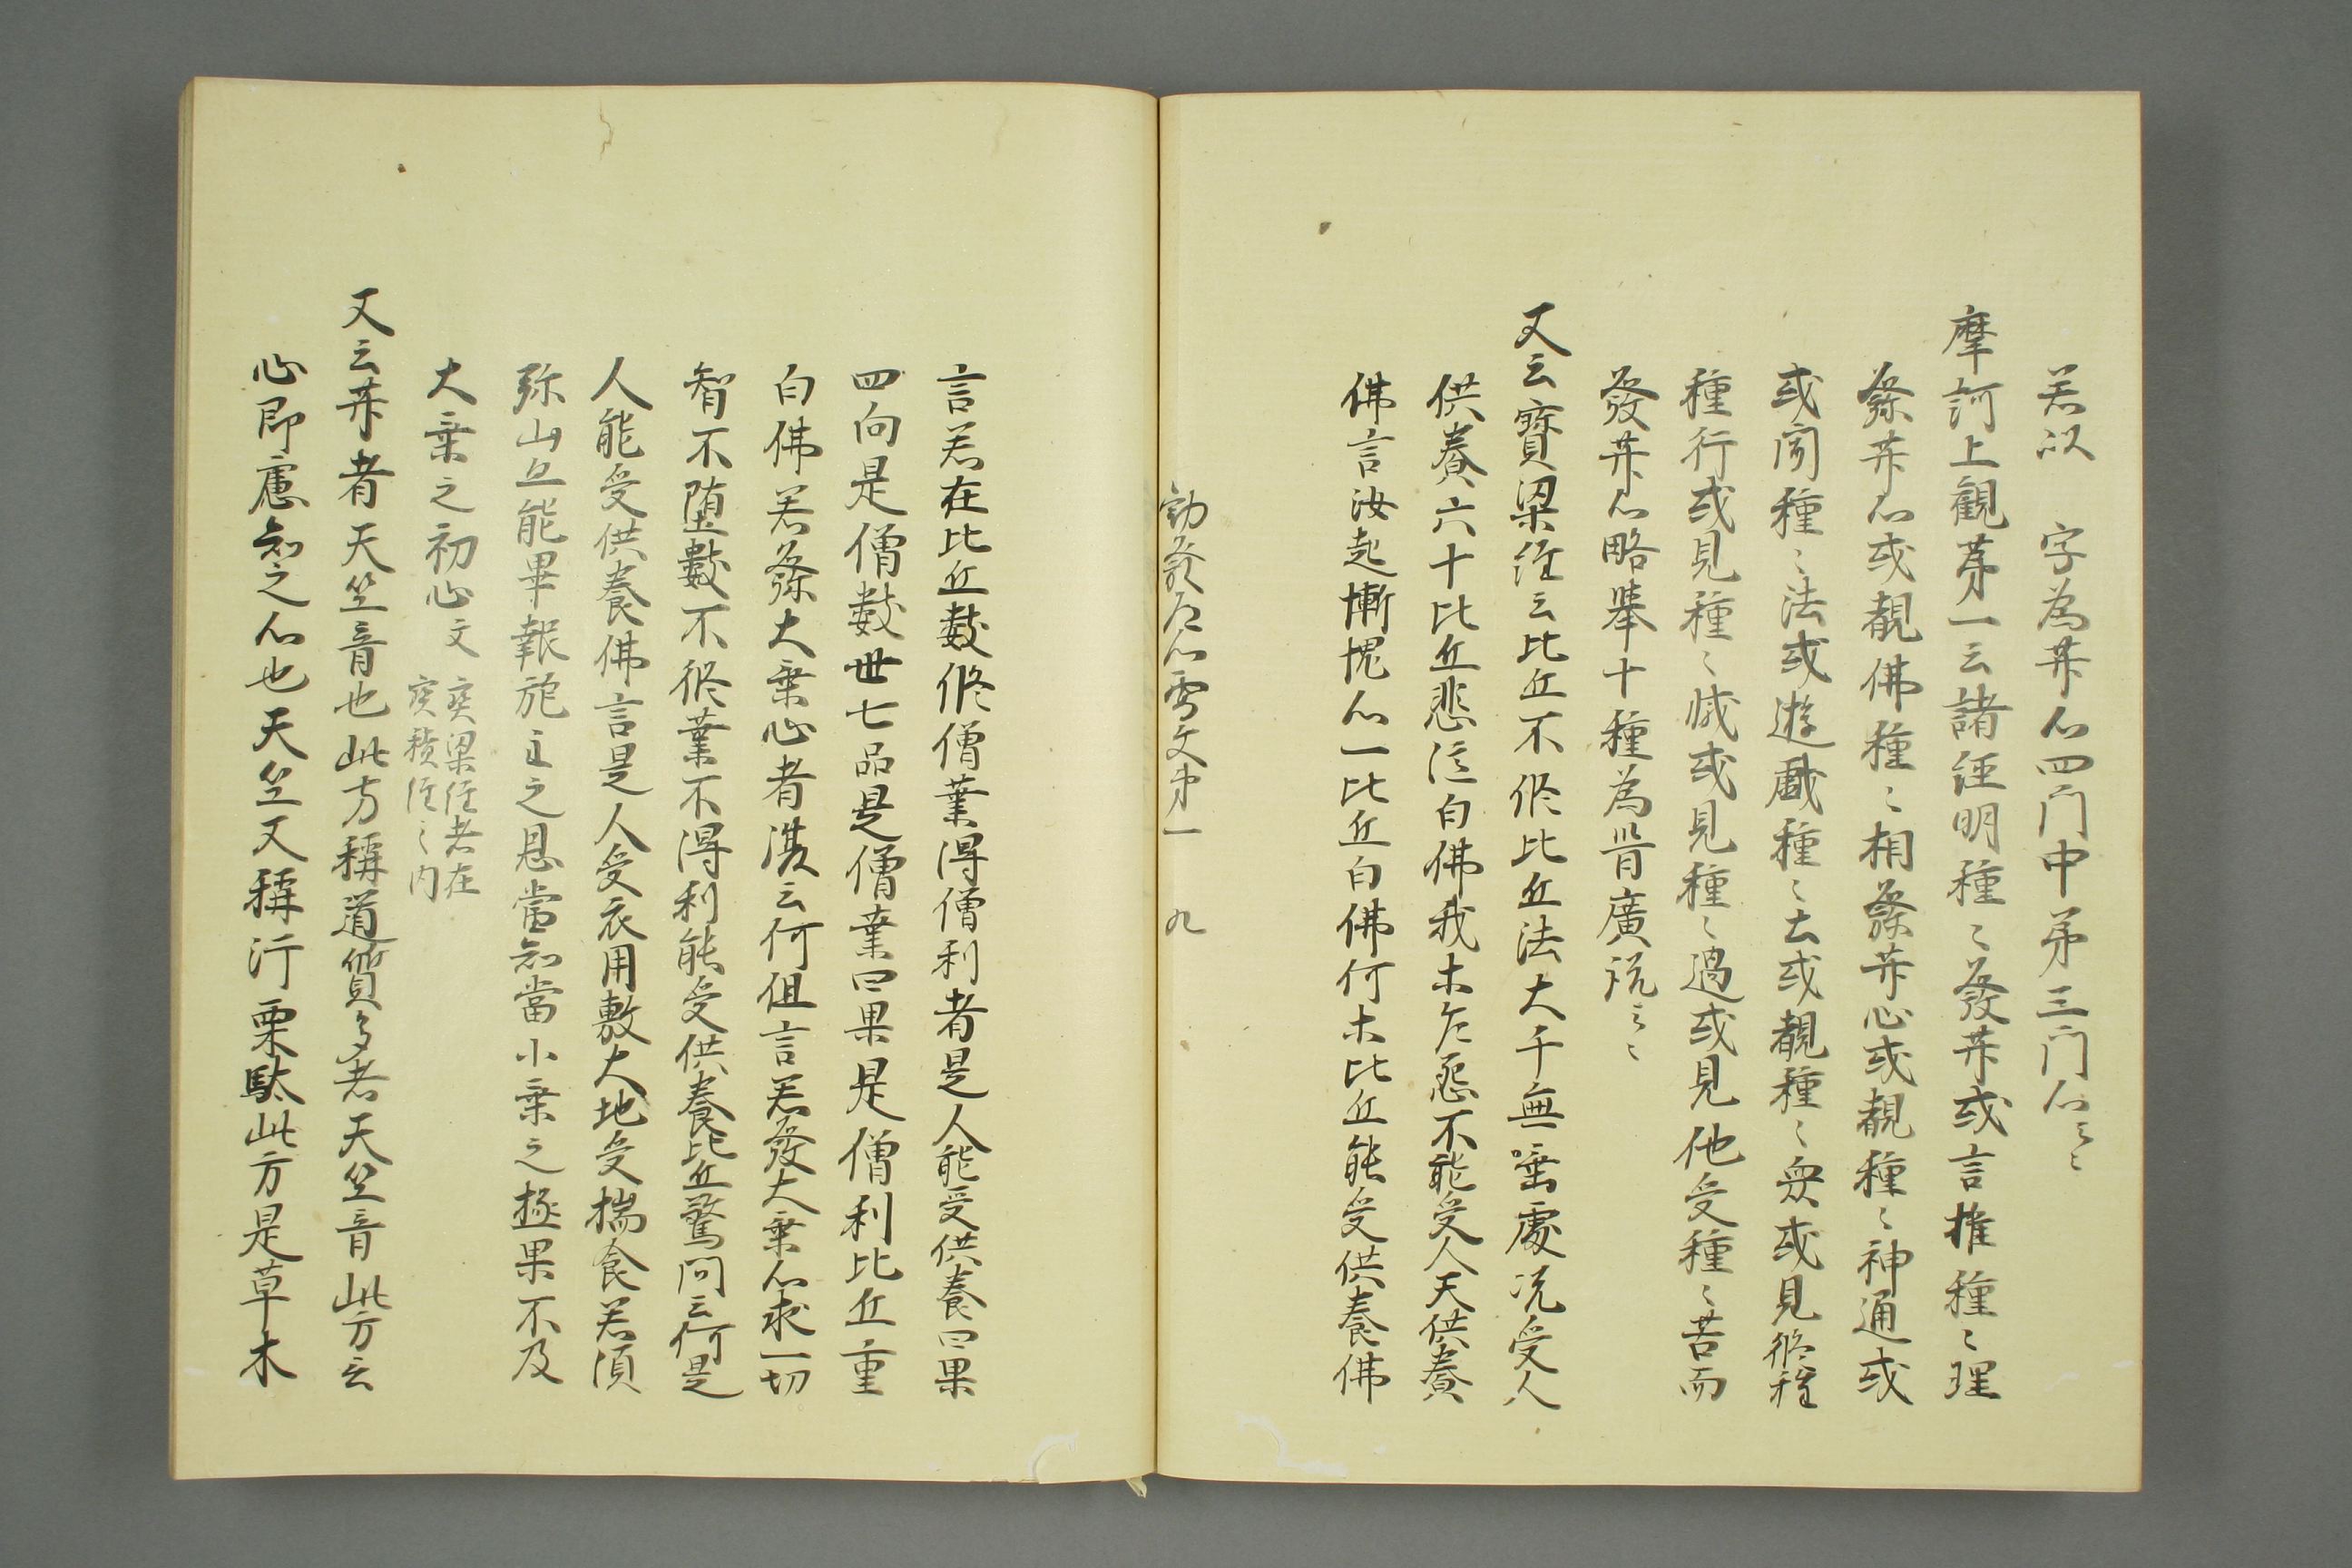 若以　字為𦬇心四门中第三门心云〻
摩訶止觀苐一云諸經明種〻發𦬇或言推種〻理
發𦬇心或覩佛種〻相發𦬇心或覩種〻神通或
或闻種〻法或遊戯種〻土或覩種〻衆或見修種
種行或見種〻滅或見種〻過或見他受種〻苦而
發𦬇心略舉十種為首廣説云〻
又云寶梁經云比丘不修比丘法大千無唾處况受人
供養六十比丘悲泣白佛我ホ乍死不能受人天供養
佛言汝起慚愧心一比丘白佛何ホ比丘能受供養佛
勧發心要文第一　九
言若在比丘數修僧業得僧利者是人能受供養四果
四向是僧數卅七品是僧業四果是僧利比丘重
白佛若發大乗心者復云何佛言若發大乗心求一切
智不堕數不修業不得利能受供養比丘驚問云何是
人能受供養佛言是人受衣用敷大地受揣食若須
弥山亦能畢報施主之恩當知當小乗之極果不及
大乗之初心文
寳梁經者在
寳積經之内
又云𦬇者天竺音也此方稱道質多者天竺音此方云
心即慮知之心也天竺又稱汙栗馱此方是草木